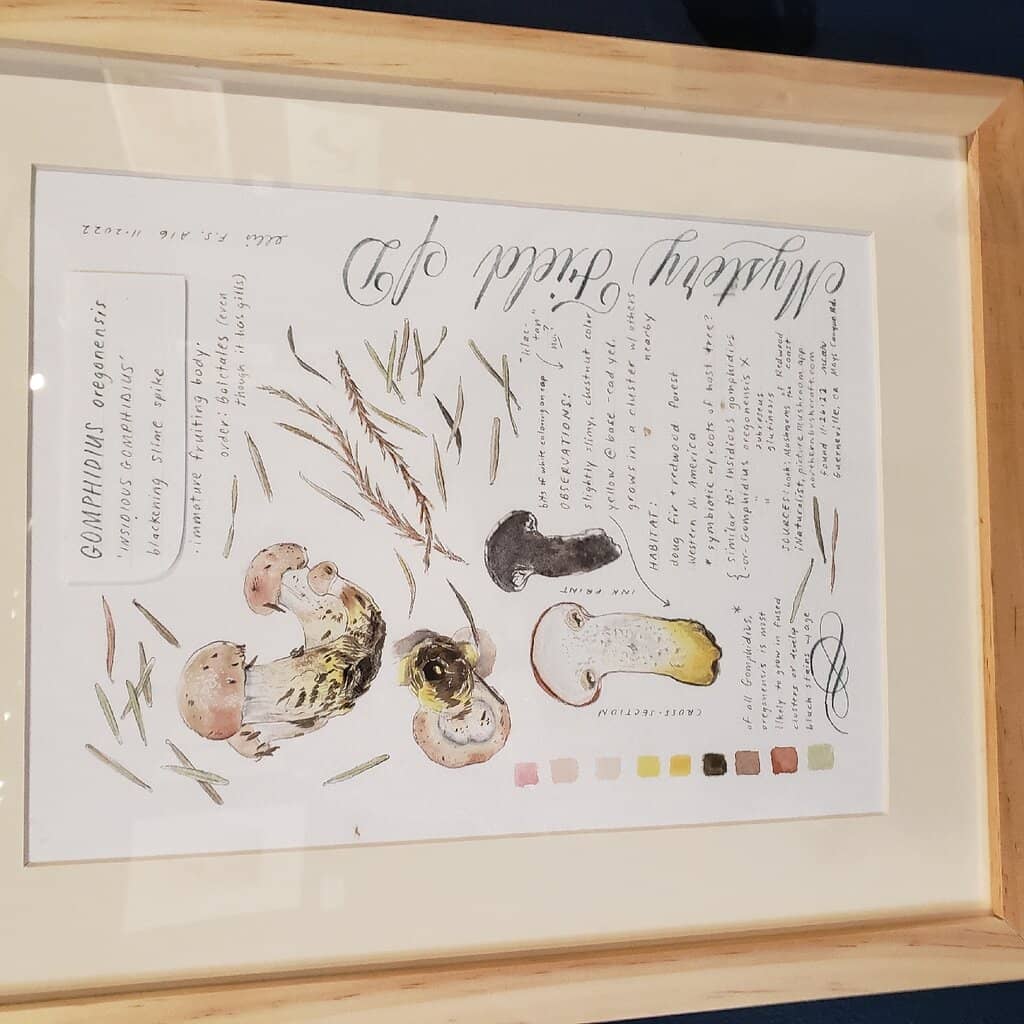 GOMPHIDIUS oregonensis
'INSIDIOUS GOMPHIDIUS'
blackening slime spike
· immature fruiting body.
order: Boletales (even
though it has gills)
ellis F.S. A16 11.2022
Mystery Field ID
bits of white coloring on cap
"lilac-
tan"
OBSERVATIONS:
slightly slimy, chestnut color
yellow @ base - cad yel.
grows in a cluster w/ others
nearby
INK PRINT
HABITAT:
doug fir + redwood forest
Western N. America
* symbiotic w/ roots of host tree?
{ similar to: insidious gomphidius
{ -or Gomphidius oregonensis X
" subroseus
" glutinosus
CROSS-SECTION
SOURCES: book: Mushrooms of Redwood coast
iNaturalist, picture mushroom app
northernbushcraft.com
found 11.26.22 near
Guerneville, ca Mays Canyon Rd.
of all Gomphidius, *
oregonensis is most
likely to grow in fused
clusters or develop
black stains w/age